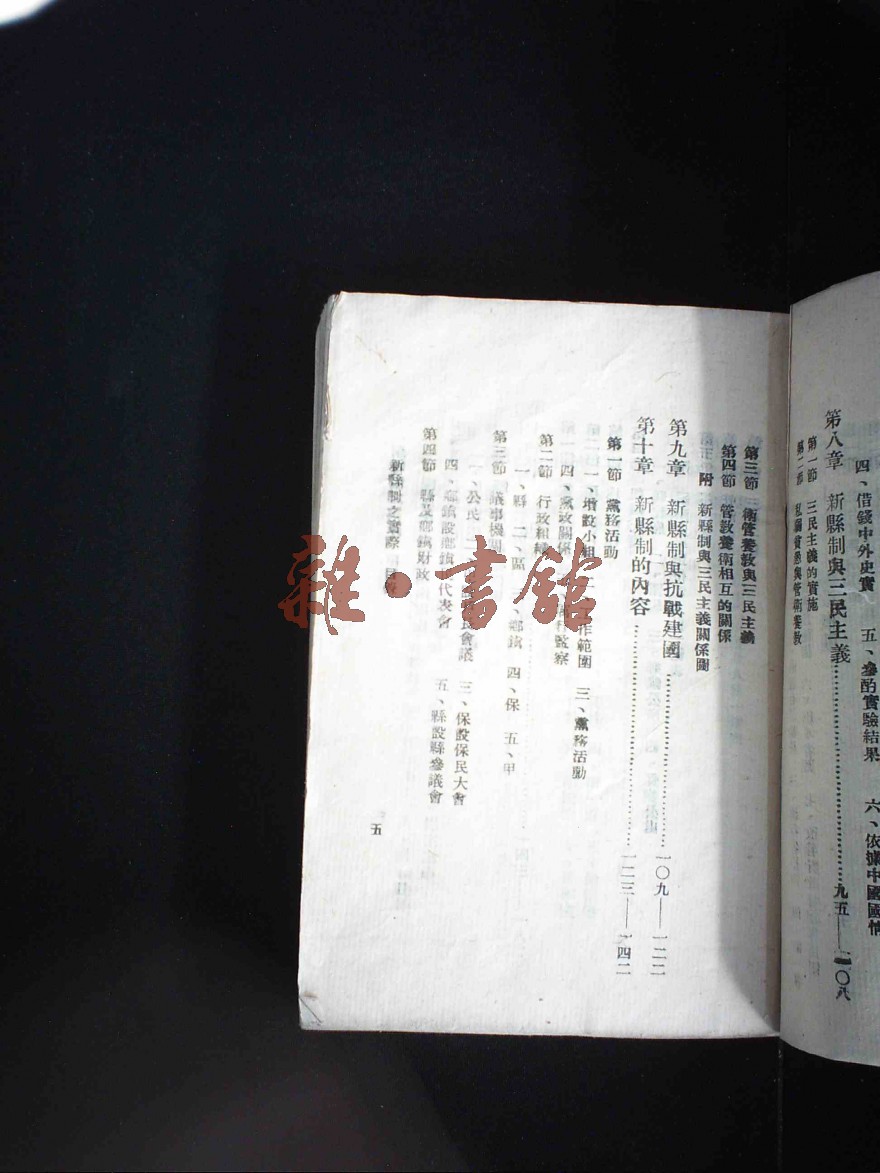 四、借鏡中外史實　五、參酌實驗結果　六、依據中國國情
第八章　新縣制與三民主義……九五—一〇八
第一節　三民主義的實施
第二節　私弱貧愚與管衛養教
第三節　衛管養教與三民主義
第四節　管教養衛相互的關係
附　新縣制與三民主義關係圖
第九章　新縣制與抗戰建國……一〇九—一二二
第十章　新縣制的內容……一二三—一四二
第一節　黨務活動
一、增設小組　二、工作範圍　三、黨務活動
四、黨政關係　監察
第二節　行政組織
一、縣　二、區　三、鄉鎮　四、保　五、甲
第三節　議事機
一、公民　二、民會議　三、保設保民大會
四、鄉鎮設鄉鎮代表會　五、縣設縣參議會
第四節　縣及鄉鎮財政
新縣制之實際　目
五
雜·書館